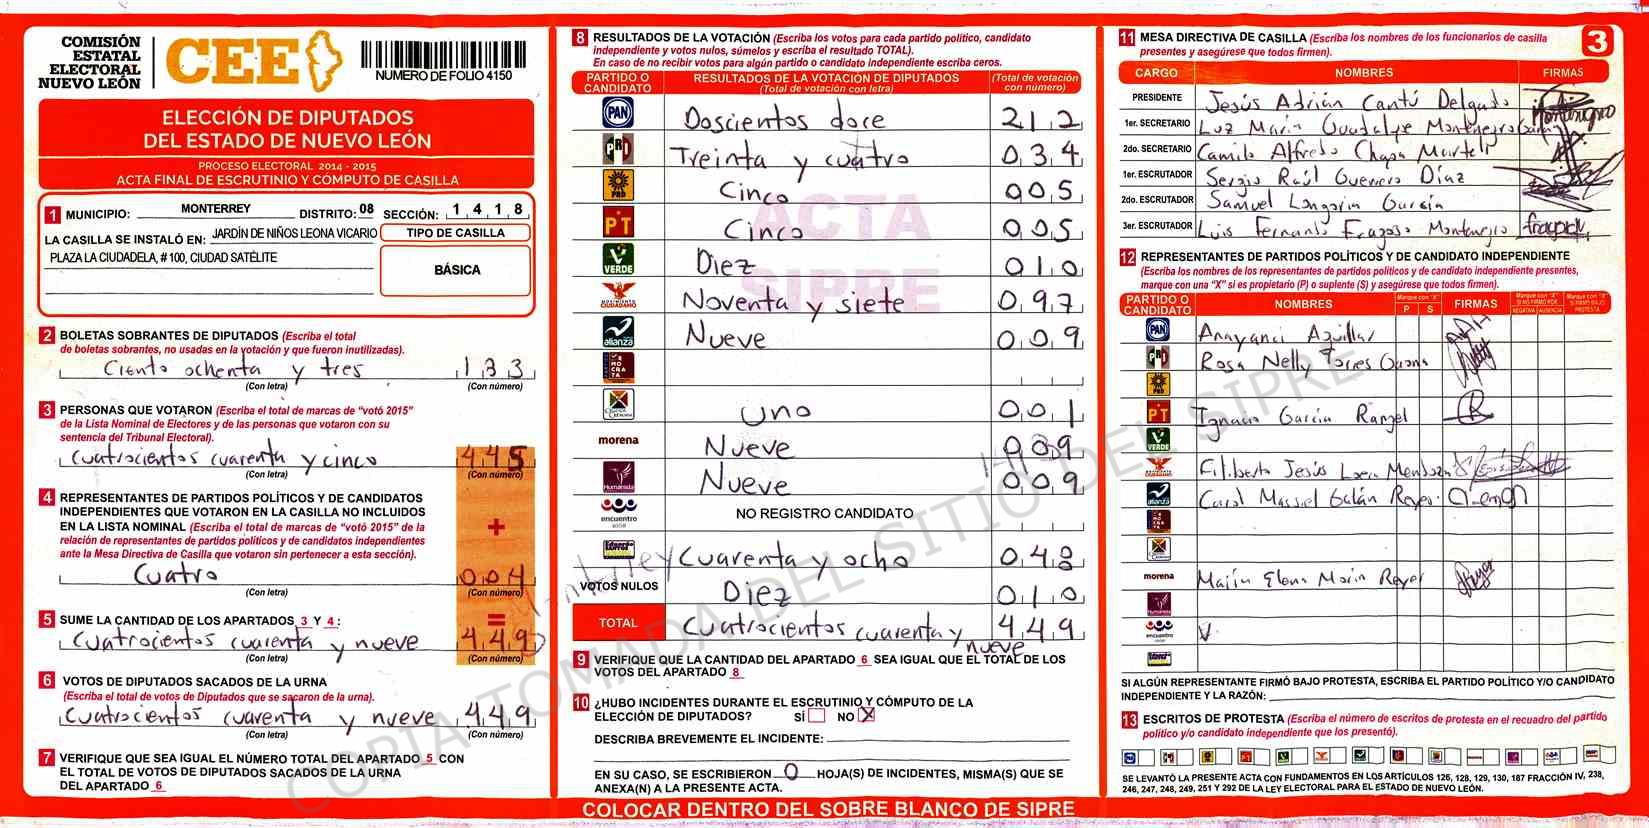 COMISIÓN
ESTATAL
ELECTORAL
NUEVO LEÓN
CEE
NUMERO DE FOLIO 4150
ELECCIÓN DE DIPUTADOS
DEL ESTADO DE NUEVO LEÓN
PROCESO ELECTORAL 2014 - 2015
ACTA FINAL DE ESCRUTINIO Y CÓMPUTO DE CASILLA
1 MUNICIPIO: MONTERREY DISTRITO: 08 SECCIÓN: 1 4 1 8
LA CASILLA SE INSTALÓ EN: JARDÍN DE NIÑOS LEONA VICARIO
PLAZA LA CIUDADELA, # 100, CIUDAD SATÉLITE
TIPO DE CASILLA
BÁSICA
2 BOLETAS SOBRANTES DE DIPUTADOS (Escriba el total
de boletas sobrantes, no usadas en la votación y que fueron inutilizadas).
Ciento ochenta y tres 183
(Con letra) (Con número)
3 PERSONAS QUE VOTARON (Escriba el total de marcas de "votó 2015"
de la Lista Nominal de Electores y de las personas que votaron con su
sentencia del Tribunal Electoral).
Cuatrocientos cuarenta y cinco 445
(Con letra) (Con número)
4 REPRESENTANTES DE PARTIDOS POLÍTICOS Y DE CANDIDATOS
INDEPENDIENTES QUE VOTARON EN LA CASILLA NO INCLUIDOS
EN LA LISTA NOMINAL (Escriba el total de marcas de "votó 2015" de la
relación de representantes de partidos políticos y de candidatos independientes
ante la Mesa Directiva de Casilla que votaron sin pertenecer a esta sección).
+
Cuatro 004
(Con letra) (Con número)
5 SUME LA CANTIDAD DE LOS APARTADOS 3 Y 4:
=
Cuatrocientos cuarenta y nueve 449
(Con letra) (Con número)
6 VOTOS DE DIPUTADOS SACADOS DE LA URNA
(Escriba el total de votos de Diputados que se sacaron de la urna).
Cuatrocientos cuarenta y nueve 449
(Con letra) (Con número)
7 VERIFIQUE QUE SEA IGUAL EL NÚMERO TOTAL DEL APARTADO 5 CON
EL TOTAL DE VOTOS DE DIPUTADOS SACADOS DE LA URNA
DEL APARTADO 6
8 RESULTADOS DE LA VOTACIÓN (Escriba los votos para cada partido político, candidato
independiente y votos nulos, súmelos y escriba el resultado TOTAL).
En caso de no recibir votos para algún partido o candidato independiente escriba ceros.
PARTIDO O CANDIDATO RESULTADOS DE LA VOTACIÓN DE DIPUTADOS (Total de votación con letra) (Total de votación con número)
PAN Doscientos doce 212
PRI Treinta y cuatro 034
PRD Cinco 005
PT Cinco 005
VERDE Diez 010
MOVIMIENTO CIUDADANO Noventa y siete 097
alianza Nueve 009
DEMOCRATA
Uno 001
morena Nueve 009
Humanista Nueve 009
encuentro social NO REGISTRO CANDIDATO
Cuarenta y ocho 048
VOTOS NULOS Diez 010
TOTAL Cuatrocientos cuarenta y nueve 449
ACTA
SIPRE
9 VERIFIQUE QUE LA CANTIDAD DEL APARTADO 6 SEA IGUAL QUE EL TOTAL DE LOS
VOTOS DEL APARTADO 8
10 ¿HUBO INCIDENTES DURANTE EL ESCRUTINIO Y CÓMPUTO DE LA
ELECCIÓN DE DIPUTADOS? SÍ NO X
DESCRIBA BREVEMENTE EL INCIDENTE:
EN SU CASO, SE ESCRIBIERON 0 HOJA(S) DE INCIDENTES, MISMA(S) QUE SE
ANEXA(N) A LA PRESENTE ACTA.
COLOCAR DENTRO DEL SOBRE BLANCO DE SIPRE
11 MESA DIRECTIVA DE CASILLA (Escriba los nombres de los funcionarios de casilla
presentes y asegúrese que todos firmen).
3
CARGO NOMBRES FIRMAS
PRESIDENTE Jesús Adrián Cantú Delgado
1er. SECRETARIO Luz María Guadalupe Montenegro García Montenegro
2do. SECRETARIO Camilo Alfredo Chapa Martell
1er. ESCRUTADOR Sergio Raúl Guerrero Díaz
2do. ESCRUTADOR Samuel Longoria García
3er. ESCRUTADOR Luis Fernando Fragoso Montenegro
12 REPRESENTANTES DE PARTIDOS POLÍTICOS Y DE CANDIDATO INDEPENDIENTE
(Escriba los nombres de los representantes de partidos políticos y de candidato independiente presentes,
marque con una "X" si es propietario (P) o suplente (S) y asegúrese que todos firmen).
PARTIDO O CANDIDATO NOMBRES Marque con "X" P S FIRMAS Marque con "X" SI NO FIRMÓ POR NEGATIVA AUSENCIA Marque con "X" SI FIRMÓ BAJO PROTESTA
PAN Anayanci Aguilar
PRI Rosa Nelly Torres
PRD
PT Ignacio García Rangel
VERDE
Filiberto Jesús Loera Mendoza
alianza Carol Massiel Galán Reyes
morena Elena Morin Reyes
encuentro social
SI ALGÚN REPRESENTANTE FIRMÓ BAJO PROTESTA, ESCRIBA EL PARTIDO POLÍTICO Y/O CANDIDATO
INDEPENDIENTE Y LA RAZÓN:
13 ESCRITOS DE PROTESTA (Escriba el número de escritos de protesta en el recuadro del partido
político y/o candidato independiente que los presentó).
SE LEVANTÓ LA PRESENTE ACTA CON FUNDAMENTOS EN LOS ARTÍCULOS 126, 128, 129, 130, 187 FRACCIÓN IV, 238,
246, 247, 248, 249, 251 Y 292 DE LA LEY ELECTORAL PARA EL ESTADO DE NUEVO LEÓN.
COPIA TOMADA DEL SITIO DEL SIPRE